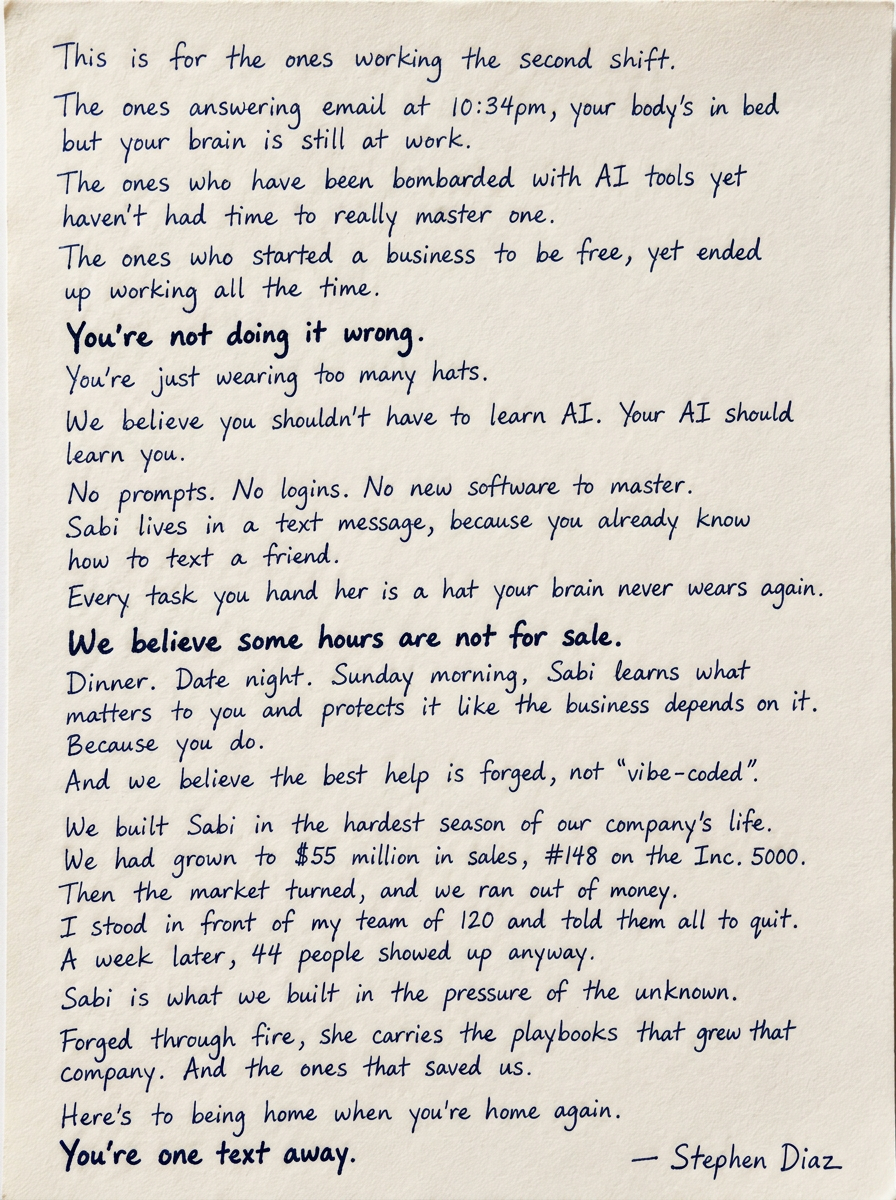 This is for the ones working the second shift.
The ones answering email at 10:34pm, your body's in bed
but your brain is still at work.
The ones who have been bombarded with AI tools yet
haven't had time to really master one.
The ones who started a business to be free, yet ended
up working all the time.
You're not doing it wrong.
You're just wearing too many hats.
We believe you shouldn't have to learn AI. Your AI should
learn you.
No prompts. No logins. No new software to master.
Sabi lives in a text message, because you already know
how to text a friend.
Every task you hand her is a hat your brain never wears again.
We believe some hours are not for sale.
Dinner. Date night. Sunday morning, Sabi learns what
matters to you and protects it like the business depends on it.
Because you do.
And we believe the best help is forged, not “vibe-coded”.
We built Sabi in the hardest season of our company's life.
We had grown to $55 million in sales, #148 on the Inc. 5000.
Then the market turned, and we ran out of money.
I stood in front of my team of 120 and told them all to quit.
A week later, 44 people showed up anyway.
Sabi is what we built in the pressure of the unknown.
Forged through fire, she carries the playbooks that grew that
company. And the ones that saved us.
Here's to being home when you're home again.
You're one text away.
— Stephen Diaz